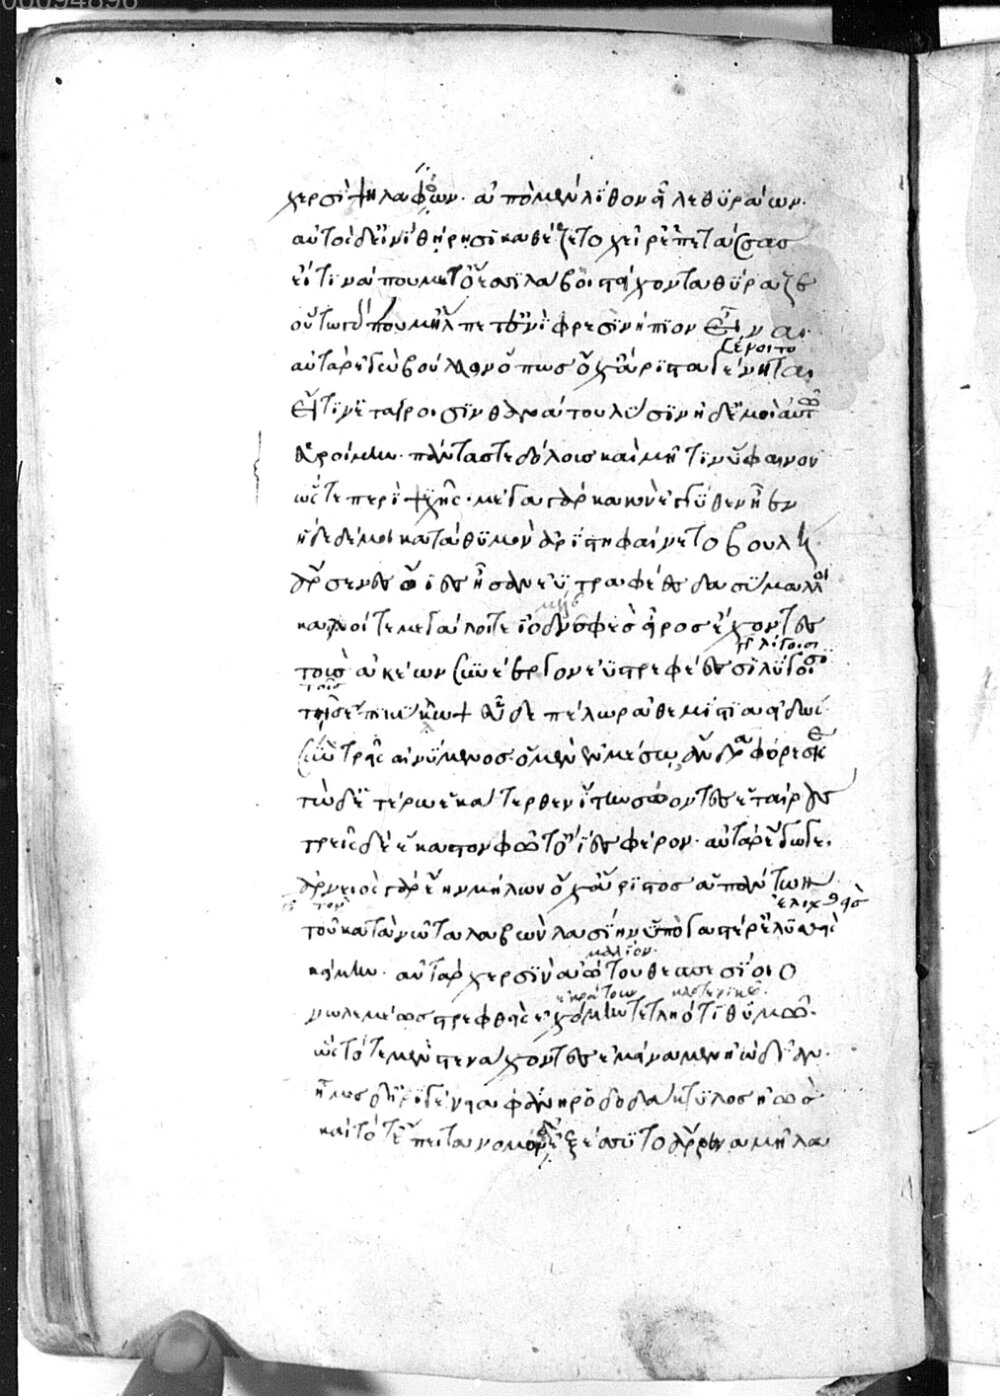 χερσὶ ψηλαφόων· ἀπὸ μὲν λίθον εἷλε θυράων·
αὐτὸς δ' εἰνὶ θύρῃσι καθέζετο χεῖρε πετάσσας
εἴ τινά που μετ' ὄεσσι λάβοι στείχοντα θύραζε
οὕτω γάρ που μ' ἤλπετ' ἐνὶ φρεσὶ νήπιον εἶναι·
γένοιτο
αὐτὰρ ἐγὼ βούλευον ὅπως ὄχ' ἄριστα γένηται
εἴ τιν' ἑταίροισιν θανάτου λύσιν ἠδ' ἐμοὶ αὐτῶ
εὑροίμην· πάντας τε δόλους καὶ μῆτιν ὕφαινον
ὥστε περὶ ψυχῆς· μέγα γὰρ κακὸν ἐγγύθεν ἦεν
ἥδε δέ μοι κατὰ θυμὸν ἀρίστη φαίνετο βουλή·
ἄρσενες ὄϊες ἦσαν ἐϋτραφέες δασύμαλλοι
καλοί τε μεγάλοι τε ἰοδνεφὲς εἶρος ἔχοντες
τοὺς ἀκέων συνέεργον ἐϋστρεφέεσσι λύγοισι
τῆς ἔπι κύκλωψ εὗδε πέλωρ ἀθεμίστια εἰδώς·
σὺν τρεῖς αἰνύμενος· ὁ μὲν ἐν μέσω ἄνδρα φέρεσκε
τὼ δ' ἑτέρω ἑκάτερθεν ἴτην σώοντες ἑταίρους
τρεῖς δὲ ἕκαστον φῶτ' ὄϊες φέρον· αὐτὰρ ἔγωγε·
ἀρνειὸς γὰρ ἔην μήλων ὄχ' ἄριστος ἁπάντων
τοῦ κατὰ νῶτα λαβὼν λασίην ὑπὸ γαστέρ' ἐλυσθεὶς
κείμην· αὐτὰρ χερσὶν ἀώτου θεσπεσίοιο
νωλεμέως στρεφθεὶς ἐχόμην τετληότι θυμῶ·
ὣς τότε μὲν στενάχοντες ἐμείναμεν ἠῶ δῖαν·
ἦμος δ' ἠριγένεια φάνη ῥοδοδάκτυλος ἠώς
καὶ τότ' ἔπειτα νομόνδ' ἐξέσσυτο ἄρσενα μῆλα